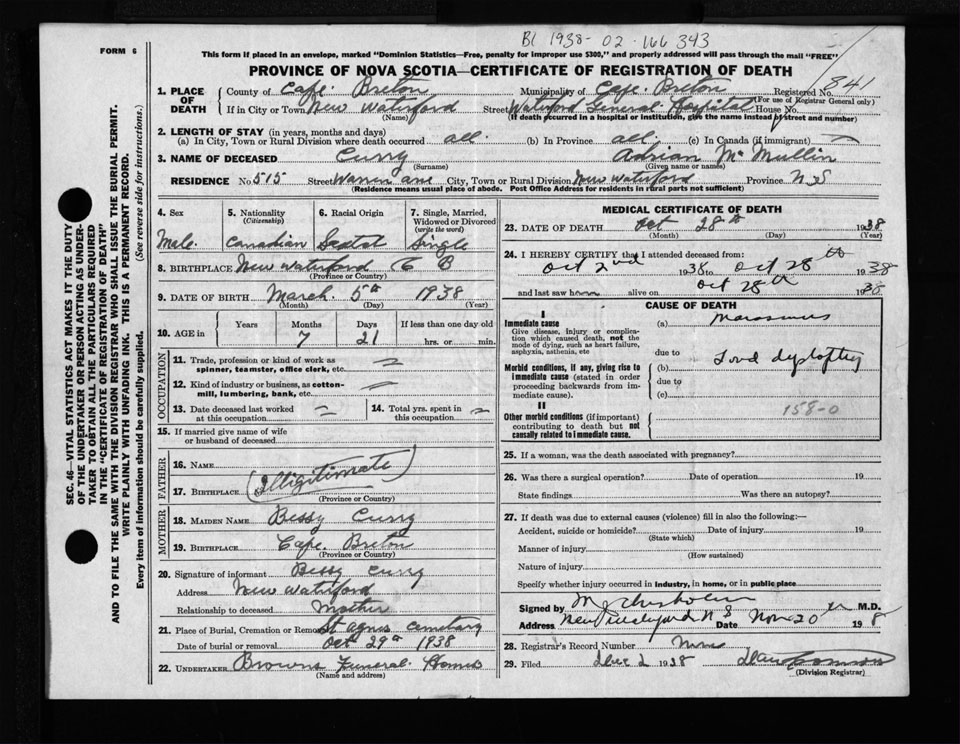 BC 1938-02-166343
FORM 6
This form if placed in an envelope, marked "Dominion Statistics—Free, penalty for improper use $300," and properly addressed will pass through the mail "FREE"
PROVINCE OF NOVA SCOTIA—CERTIFICATE OF REGISTRATION OF DEATH
1. PLACE OF DEATH
County of Cape Breton Municipality of Cape Breton Registered No. 841
(For use of Registrar General only)
If in City or Town New Waterford Street Waterford General Hospital House No.
(Name) (If death occurred in a hospital or institution, give the name instead of street and number)
2. LENGTH OF STAY (in years, months and days)
(a) In City, Town or Rural Division where death occurred all. (b) In Province all. (c) In Canada (if immigrant) —
3. NAME OF DECEASED Curry Adrian Mc Mullin
(Surname) (Given name or names)
RESIDENCE No 515 Street Warren ave City, Town or Rural Division New Waterford Province N S
(Residence means usual place of abode. Post Office Address for residents in rural parts not sufficient)
4. Sex
Male.
5. Nationality
(Citizenship)
Canadian
6. Racial Origin
7. Single, Married, Widowed or Divorced
(write the word)
Single
8. BIRTHPLACE New Waterford C B
(Province or Country)
9. DATE OF BIRTH March 5th 1938
(Month) (Day) (Year)
10. AGE in
Years Months Days If less than one day old
7 21 hrs. or min.
OCCUPATION
11. Trade, profession or kind of work as spinner, teamster, office clerk, etc.
12. Kind of industry or business, as cotton-mill, lumbering, bank, etc.
13. Date deceased last worked at this occupation
14. Total yrs. spent in this occupation
15. If married give name of wife or husband of deceased
FATHER
16. NAME
(Illigitimate)
17. BIRTHPLACE
(Province or Country)
MOTHER
18. MAIDEN NAME Bessy Curry
19. BIRTHPLACE Cape Breton
(Province or Country)
20. Signature of informant Bessy Curry
Address New Waterford
Relationship to deceased Mother
21. Place of Burial, Cremation or Removal St Agnes Cemetary
Date of burial or removal Oct 29th 1938
22. UNDERTAKER Browns Funeral Home
(Name and address)
MEDICAL CERTIFICATE OF DEATH
23. DATE OF DEATH Oct 28th 1938
(Month) (Day) (Year)
24. I HEREBY CERTIFY that I attended deceased from:
Oct 2nd 1938 to Oct 28th 1938
and last saw h alive on Oct 28th 1938
CAUSE OF DEATH
I
Immediate cause
Give disease, injury or complication which caused death, not the mode of dying, such as heart failure, asphyxia, asthenia, etc
(a) Marasmus
due to
Morbid conditions, if any, giving rise to immediate cause (stated in order proceeding backwards from immediate cause).
(b)
due to
(c)
II
Other morbid conditions (if important) contributing to death but not causally related to immediate cause.
158-0
25. If a woman, was the death associated with pregnancy?
26. Was there a surgical operation? Date of operation 19
State findings Was there an autopsy?
27. If death was due to external causes (violence) fill in also the following:—
Accident, suicide or homicide? Date of injury 19
(State which)
Manner of injury
(How sustained)
Nature of injury
Specify whether injury occurred in industry, in home, or in public place
Signed by M.D.
Address N S Date Nov 20th 1938
28. Registrar's Record Number
29. Filed Dec 2 1938
(Division Registrar)
SEC. 46—VITAL STATISTICS ACT MAKES IT THE DUTY
OF THE UNDERTAKER OR PERSON ACTING AS UNDER-
TAKER TO OBTAIN ALL THE PARTICULARS REQUIRED
IN THE "CERTIFICATE OF REGISTRATION OF DEATH"
AND TO FILE THE SAME WITH THE DIVISION REGISTRAR WHO SHALL ISSUE THE BURIAL PERMIT.
WRITE PLAINLY WITH UNFADING INK. THIS IS A PERMANENT RECORD.
Every item of information should be carefully supplied. (See reverse side for instructions.)